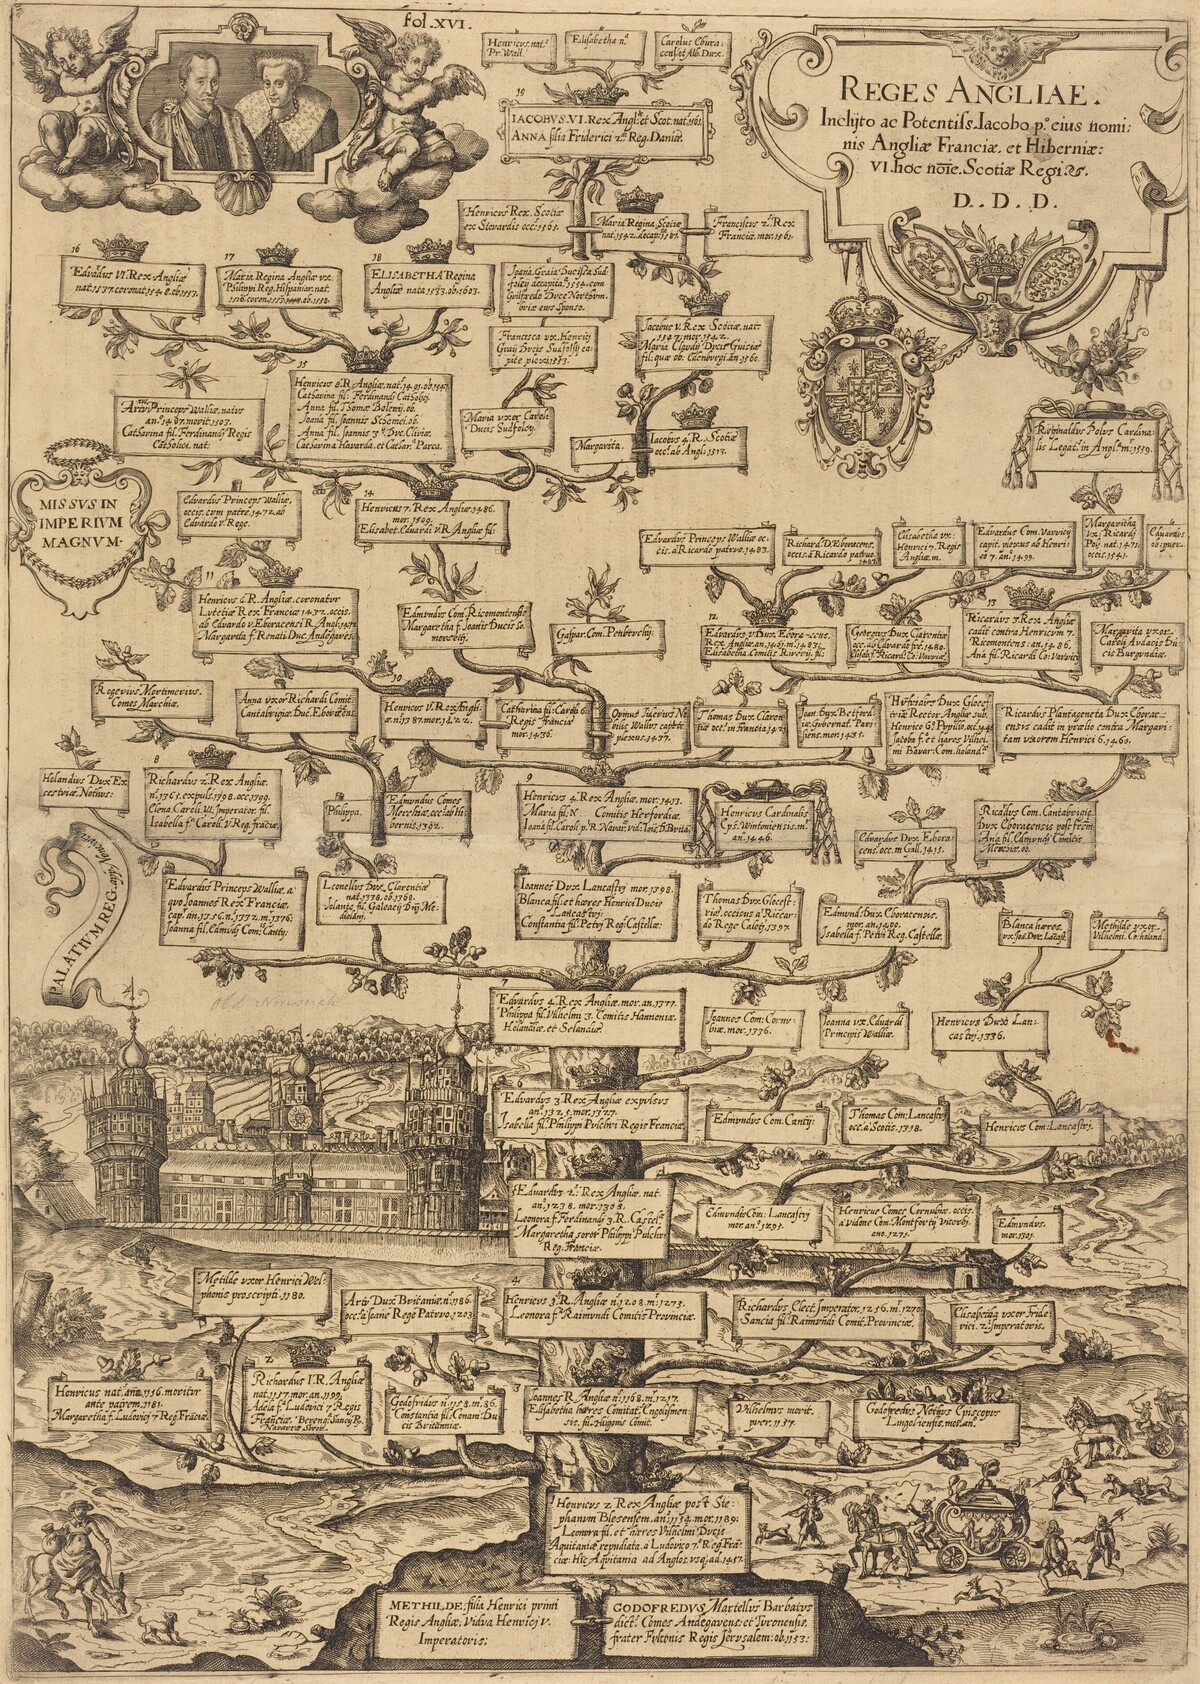 fol. XVI.
Henricus. nat.
Pr. Wall.
Elisabetha n.
Carolus Ebura
cens. et Alb. Dux.
REGES ANGLIAE.
Inclijto ac Potentiss. Iacobo p.° eius nomi:
nis Angliæ Franciæ. et Hiberniæ:
VI. hoc noīe. Scotiæ Regi.
D. D. D.
19
IACOBVS. VI. Rex Angl. et Scot. nat.
ANNA filia Friderici 2. Reg. Daniæ.
Henricus Rex. Scotiæ
ex Stevardis occ. 1567.
Maria Regina Scotiæ
nat. 1542. decap. 1587.
Franciscus 2. Rex
Franciæ. mor. 1561.
16
Edvardus VI. Rex Angliæ
nat. 1537. coronat. 1548. ob. 1553.
17
Maria Regina Angliæ vx.
Philippi Reg. Hispaniar. nat.
18
ELISABETHA Regina
Angliæ nata 1533. ob. 1603.
Ioāna. Graia Ducissa Sud
folcij decapita. 1554. cum
Gilfredo Duce Northum
briæ eius sponso.
Francisca vx. Henrici
Graij Ducis Sudfolsij ca
pite plexi 1553.
Iacobus V. Rex Scotiæ. nat:
mor. 1542.
Maria Claudij Ducis Guiciæ
fil: quæ ob: Edenburgi an. 1560.
15
Henricus 8. R. Angliæ. nat. 1491. ob. 1547.
Catharina fil: Ferdinandi Catholici.
Anna fil: Thomæ Bolenij. ob.
Ioana fil: Ioannis Sehemei. ob.
Anna fil: Ioannis 3. Duc. Cliviæ.
Catharina Havarda. et Cathar: Parea.
Arty Princeps Walliæ. natus
an. 1487. morit. 1503.
Catharina fil. Ferdinandi Regis
Catholici. nat:
Maria vxor Caroli
Ducis Sudfolcij.
Margarita.
Iacobus 4. R. Scotiæ
occ. ab Angl. 1513.
Reginaldus Polus Cardina
lis Legat. in Angl. m: 1559.
MISSVS IN
IMPERIVM
MAGNVM.
Edvardus Princeps Walliæ.
occis. cum patre. 1472. ab
Edvardo V. Rege.
14
Henricus 7. Rex Angliæ. 1486.
mor. 1509.
Elisabet. Eduardi V. R. Angliæ fil:
Edvardus Princeps Walliæ oc
cis. a Ricardo patruo. 1483.
Richard. D. Eboracens.
occis. a Ricardo patruo.
Elisabetha vx:
Henrici 7. Regis
Angliæ. m.
Edvardus Com. Varvicij
capit. plexus ab Henri
co 7. an. 1499.
Margaritha
vx: Ricardi
Poli nat. 1471.
occis. 1541.
Eduardus
ob: puer.
11
Henricus 6. R. Angliæ. coronatur
Lutetiæ Rex Franciæ 1432. occis.
ab Edvardo V. Eboracensi R. Angl. 1472
Margareta f: Renati Duc. Andegaves.
Edmundus Com. Ricomontensis.
Margaretha f: Ioanis Ducis So
mersetij.
Gaspar. Com. Penbruchij.
12
Edvardus V Dux Ebora-cens.
Rex Angliæ. an. 1461. m. 1483.
Elisabetha Comitis Riverij. fil:
Georgius Dux Clarentiæ
occ. ab Edvardo fre. 1480.
Elisab. f. Ricardi Co: Varviciæ.
13
Ricardus 3. Rex Angliæ
cadit contra Henricum 7.
Ricomontens: an. 1486.
Ana fil. Ricardi Co: Varvicij
Margarita vxor
Caroli Audacis Du
cis Burgundiæ.
Rogerius Mortimerius.
Comes Marchiæ.
Anna vxor Richardi Comit.
Cantabrigiæ. Duc. Eboracens.
10
Henricus V. Rex Angli-
æ. n. 1387. mor. 1422.
Catharina fil: Caroli 6.
Regis Franciæ
mor. 1436.
Ovinus Tiderius No
bilis Wallus capite
plexus. 1437.
Thomas Dux Claren
tiæ occ. in Francia. 1421
Ioan. Dux Betford
iæ. Gubernat. Pari
siens. mor. 1435.
Humfridus Dux Glocest
triæ Rector Angliæ sub.
Henrico 6. Pupillo. occ. 1446
Iacoba f. et hæres Vilhel
mi Bavar: Com. holand.
Ricardus Plantageneta Dux Eborac:
ensis cadit in prælio contra Margari
tam vxorem Henrici 6. 1460.
Holandius Dux Ex
cestriæ. Nothus:
8
Richardus 2. Rex Angliæ.
n. 1365. expuls. 1398. occ. 1399.
Elena Caroli. VI. Imperator. fil.
Isabella fa Caroli. V. Reg. fraciæ.
Philippa.
Edmundus Comes
Merchiæ. occ. ab Hi
bernis. 1392.
9
Henricus 4. Rex Angliæ. mor. 1413.
Maria fil: N Comitis Herfordiæ.
Ioana fil. Caroli p. R. Navar: vid: Iois D. Brita.
Henricus Cardinalis
Eps. Wintoniensis. m.
an. 1446.
Eduardus Dux Ebora
cens. occ. in Gall. 1415.
Ricardus Com. Cantabrigiæ.
Dux Eboracensis post frem
Ana fil. Edmundi Comitis
Merchiæ. ob.
PALATIVM REG. appi Noncuts
Edvardus Princeps Walliæ. a
quo Ioannes Rex Franciæ.
cap. an. 1356. n. 1332. m. 1376:
Ioanna fil. Edmudi Com: Cantij:
Leonellus Dux. Clarentiæ
nat. 1338. ob. 1368.
Iolante. fil: Galeacij Dni Me
diolani.
Ioannes Dux Lancastrij mor. 1398.
Blanca fil. et hæres Henrici Ducis
Lancastrij.
Constantia fil: Petrij Reg: Castellæ.
Thomas Dux Glocest-
riæ, occisus a Riccar-
do Rege Caleti. 1397.
Edmund. Dux Eboracensis.
mor. an. 1400.
Isabella f. Petri Reg. Castellæ.
Blanca hæres.
vx. Ioa. Duc. Lācast.
Methilde vxor.
Vilhelmi. Co: holand.
7
Edvardus 4. Rex Angliæ. mor. an. 1377.
Philippa fil. Vilhelmi 3. Comitis Hannoniæ.
Holandiæ. et Selandiæ.
Ioannes Com: Cornv-
biæ. mor. 1336.
Ioanna vx. Eduardi
Principis Walliæ.
Henricus Duxd Lan:
castrij. 1336.
6
Edvardus 3. Rex Angliæ expulsus
an. 1325. mor. 1327.
Isabella fil. Philippi Pulchri Regis Franciæ.
Edmundus Com. Cantij:
Thomas Com: Lancastrij
occ. a Scotis. 1318.
Henricus Com: Lancastrj.
Eduardus 2. Rex Angliæ. nat.
an. 1238. mor. 1308.
Leonora f. Ferdinandi 3. R. Castel.
Margaretha soror Philippi Pulchri
Reg. Franciæ.
Edmundus Com: Lancastrij
mor. an. 1295.
Henricus Comes Cornubiæ. occis.
a vidone Com. Montfortij Viterbij.
ano. 1271.
Edmundus.
mor. 1301.
Metilde vxor Henrici Wel-
phonis proscripti. 1180.
Arty Dux Britaniæ. n. 1186.
occ. a Ioane Rege Patruo. 1203.
4
Henricus 3. R. Angliæ n. 1208. m. 1273.
Leonora f. Raimundi Comitis Provinciæ.
Richardus Elect. Imperator. 1256. m. 1270.
Sancia fil. Raimundi Comit. Provinciæ.
Elisabetha vxor fride
rici. 2. Imperatoris.
Henricus nat. ano. 1156. moritur
ante patrem. 1181.
Margaretha f. Ludovici 7 Reg. Franciæ.
2
Richardus I. R. Angliæ
nat. 1157. mor. an. 1199.
Adela f. Ludovici 7 Regis
Franciæ. Bereng. Sancij R.
Navarræ Soror.
Godofridus n. 1158. m. 86.
Constantia fil: Conani Du
cis Britanniæ.
3
Ioannes R. Angliæ n. 1168. m. 1217.
Elisabetha hæres Comitat. Engolismen:
sis. fil. Hugonis Comit.
Vilhelmus morit.
puer. 1157.
Godofredus Nothus Episcopus
Lingoliensis. mor. an.
Henricus 2 Rex Angliæ post Ste:
phanum Blesensem. an. 1154. mor. 1189:
Leonora fil. et hæres Vilhelmi Ducis
Aquitaniæ, repudiata a Ludovico 7. Reg. Fra
ciæ: Hic Aqvitania ad Anglos. vsq. ad. 1457.
METHILDE, filia Henrici primi
Regis Angliæ, Vidua Henrici V.
Imperatoris:
GODOFREDVS, Martellus Barbatus
dict. Comes Andegavens: et Tvronensis,
frater Fulconis Regis Ierusalem: ob. 1153: